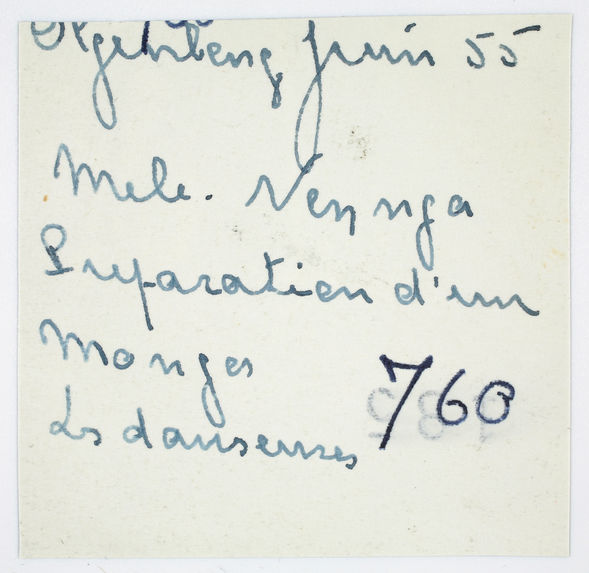 juin 55
Mele. Nennga
Preparation d'un
Monges
Ls danseuses
760